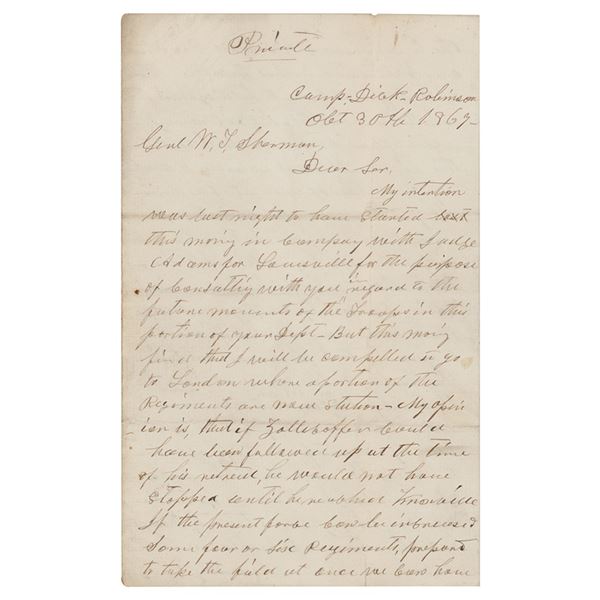 Private
Camp-Dick-Robinson
Oct 30th 1861-
Genl W. T. Sherman,
Dear Sir,
My intention
was last night to have started
this mornig in Company with Judge
Adams for Louisville for the purpose
of Consultig with you in regard to the
future moments of the Troops in this
portion of your Dept- But this mornig
find that I will be compelled to go
to London where a portion of the
Regiments are now station- My opin
ion is, that if Zollicoffer Could
have been followed up at the time
of his retreat, he would not have
Stopped until he reached Knoxville
If the present force Can be increased
Some four or Six Regiments, prepard
to take the field at once we Can have